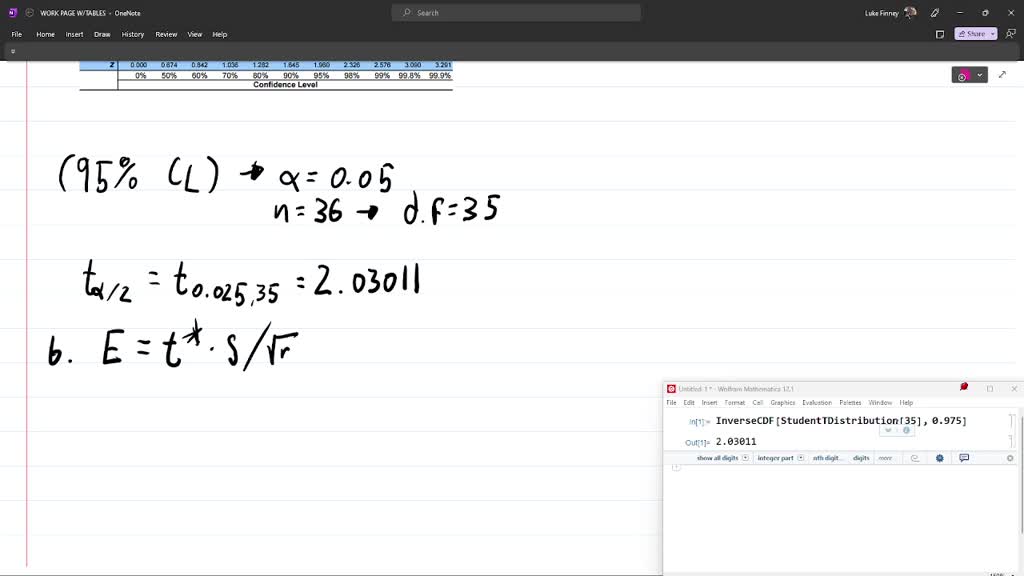 WORK PAGE W/TABLES - OneNote
Search
Luke Finney
File Home Insert Draw History Review View Help
Share
z 0.000 0.674 0.842 1.036 1.282 1.645 1.960 2.326 2.576 3.090 3.291
0% 50% 60% 70% 80% 90% 95% 98% 99% 99.8% 99.9%
Confidence Level
(95% CL) → α = 0.05
n = 36 → d.f = 35
tα/2 = t0.025,35 = 2.03011
b. E = t* · s/√r
Untitled-1 * - Wolfram Mathematica 12.1
File Edit Insert Format Cell Graphics Evaluation Palettes Window Help
In[1]:= InverseCDF[StudentTDistribution[35], 0.975]
Out[1]= 2.03011
show all digits integer part nth digit... digits more